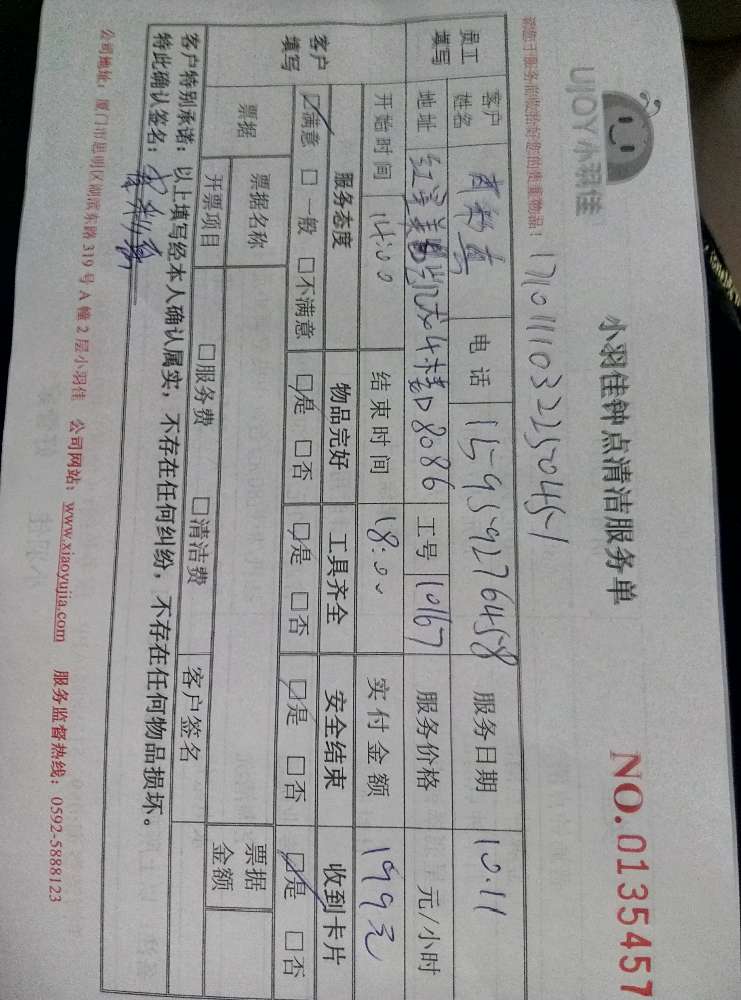 UJOY小羽佳
小羽佳钟点清洁服务单
NO.0135457
请您于服务前收拾好您的贵重物品！
1710111032250451
员工填写
客户姓名 电话 15959276458 服务日期 10.11
地址 4楼D8086 工号 10167 服务价格 元/小时
开始时间 14:00 结束时间 18:00 实付金额 199元
客户填写
服务态度 物品完好 工具齐全 安全结束 收到卡片
☑满意 □一般 □不满意 ☑是 □否 ☑是 □否 ☑是 □否 ☑是 □否
票据 票据名称 票据金额
开票项目 □服务费 □清洁费 客户签名
客户特别承诺：以上填写经本人确认属实，不存在任何纠纷，不存在任何物品损坏。
特此确认签名：
公司地址：厦门市思明区湖滨东路319号A幢2层小羽佳 公司网站：www.xiaoyujia.com 服务监督热线：0592-5888123